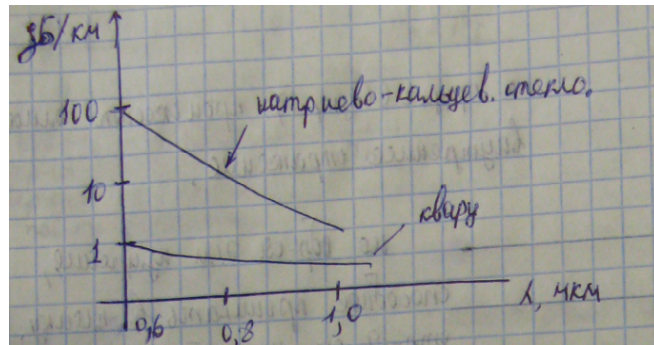 дБ/км
100
натриево-кальцев. стекло.
10
кварц
1
0,6
0,8
1,0
λ, мкм